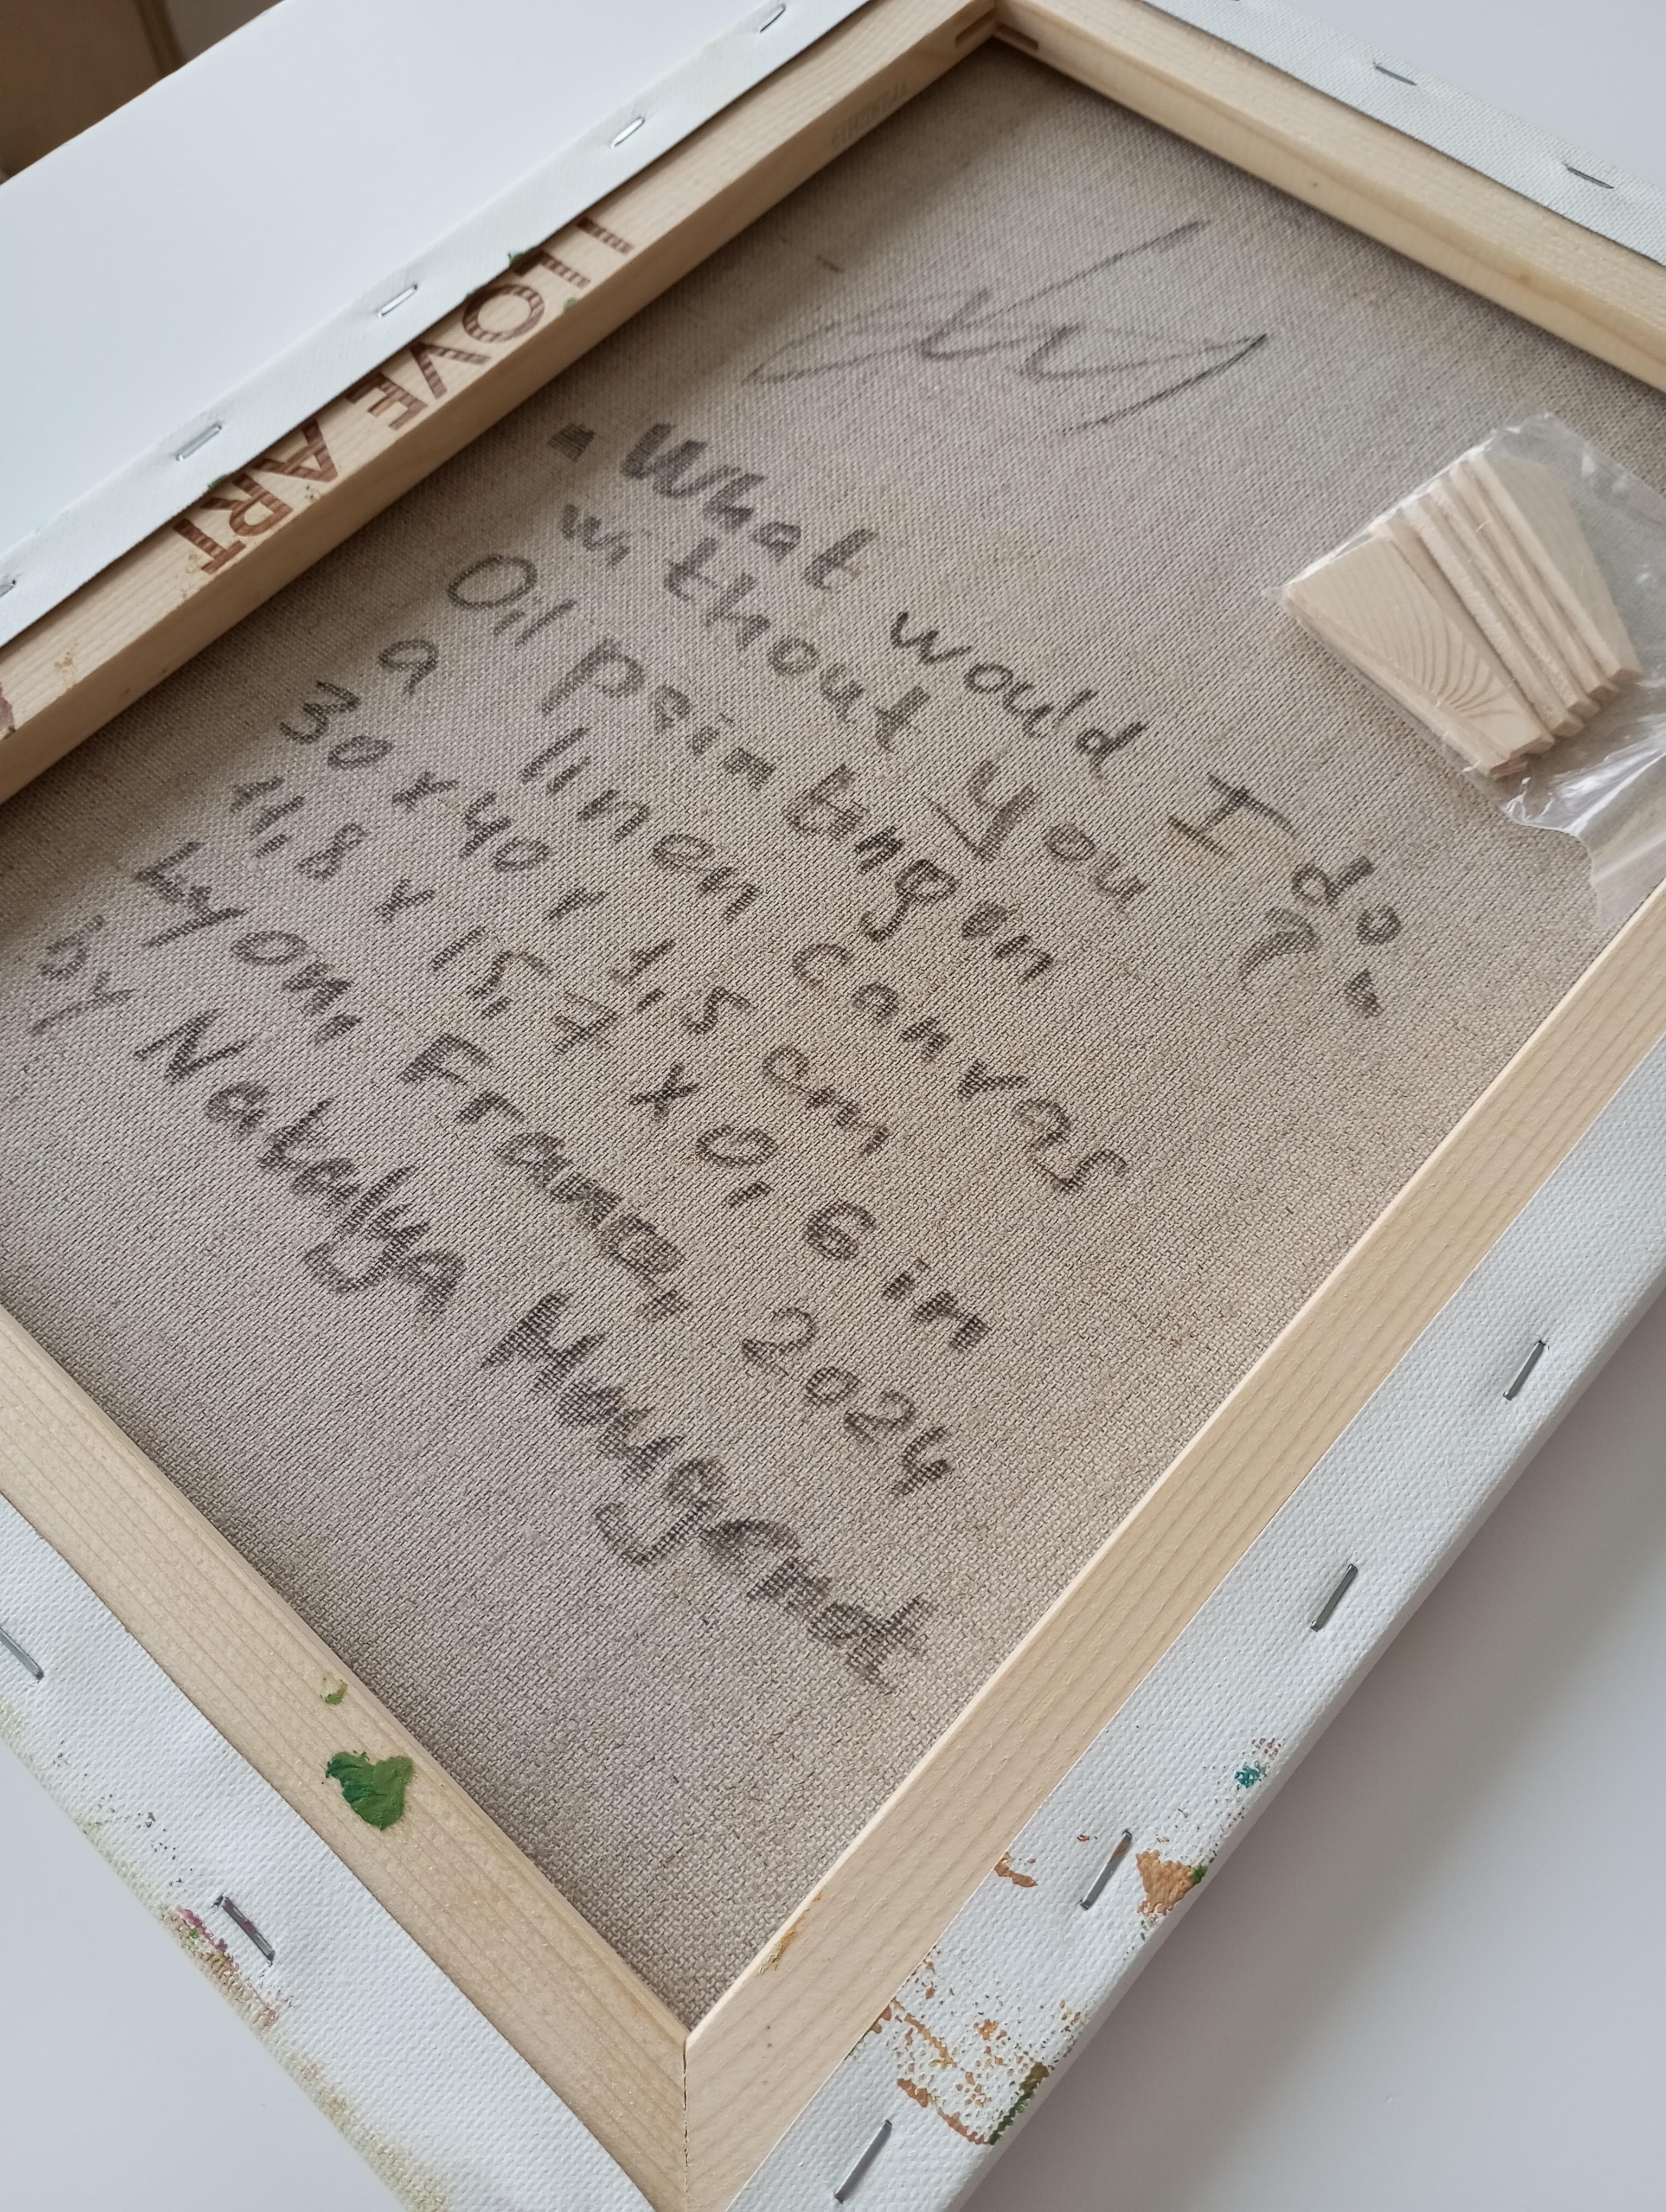 I LOVE ART
"What would I do
without you ?"
Oil painting on
a linen canvas
30 x 40 x 1,5 cm
11,8 x 15,7 x 0,6 in
Lyon, France, 2024
by Natalya Mougenot